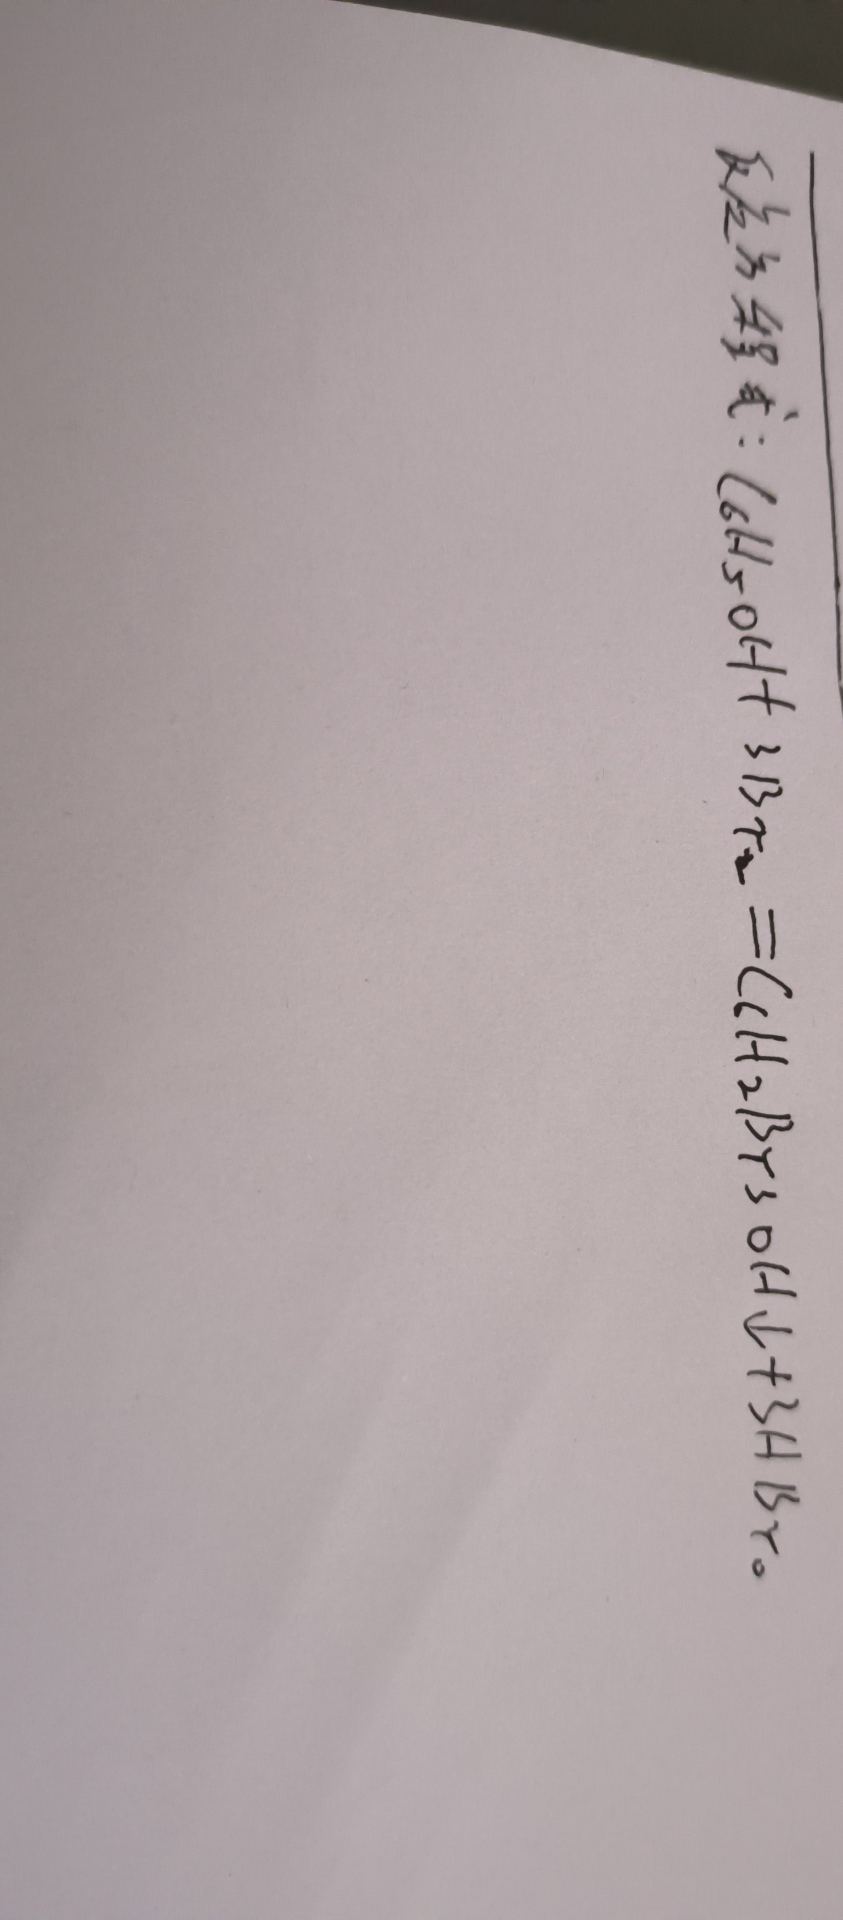 反应方程式:C6H5OH+3Br2=C6H2Br3OH↓+3HBr。